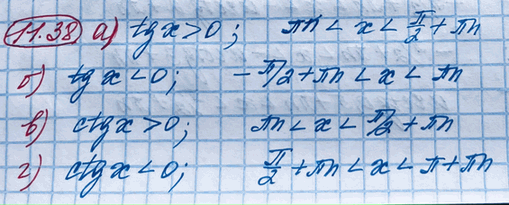 11.38 а) tg x > 0; πn < x < π/2 + πn
б) tg x < 0; -π/2 + πn < x < πn
в) ctg x > 0; πn < x < π/2 + πn
г) ctg x < 0; π/2 + πn < x < π + πn